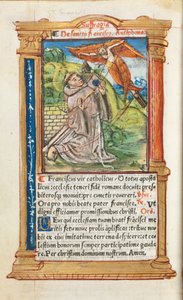 Suffragia
De sancto francisco. Antiphona.
Franciscus vir catholicus / O totus aposto
licus ecclesie teneri fidē romane docuit: pres
biterosq; monuit pre cunctis reuereri. Vers.
Ora pro nobis beate pater francisce. R.
digni efficiamur promissionibus christi. Orō.
Deus qui ecclesiam tuam beati frācisci me
ritis fetu noue prolis āplificas: tribue no
bis ex eius imitatione terrena despicere: et ce
lestium donorum semper participatione gaude
re. Per christum dominum nostrum. Amen.